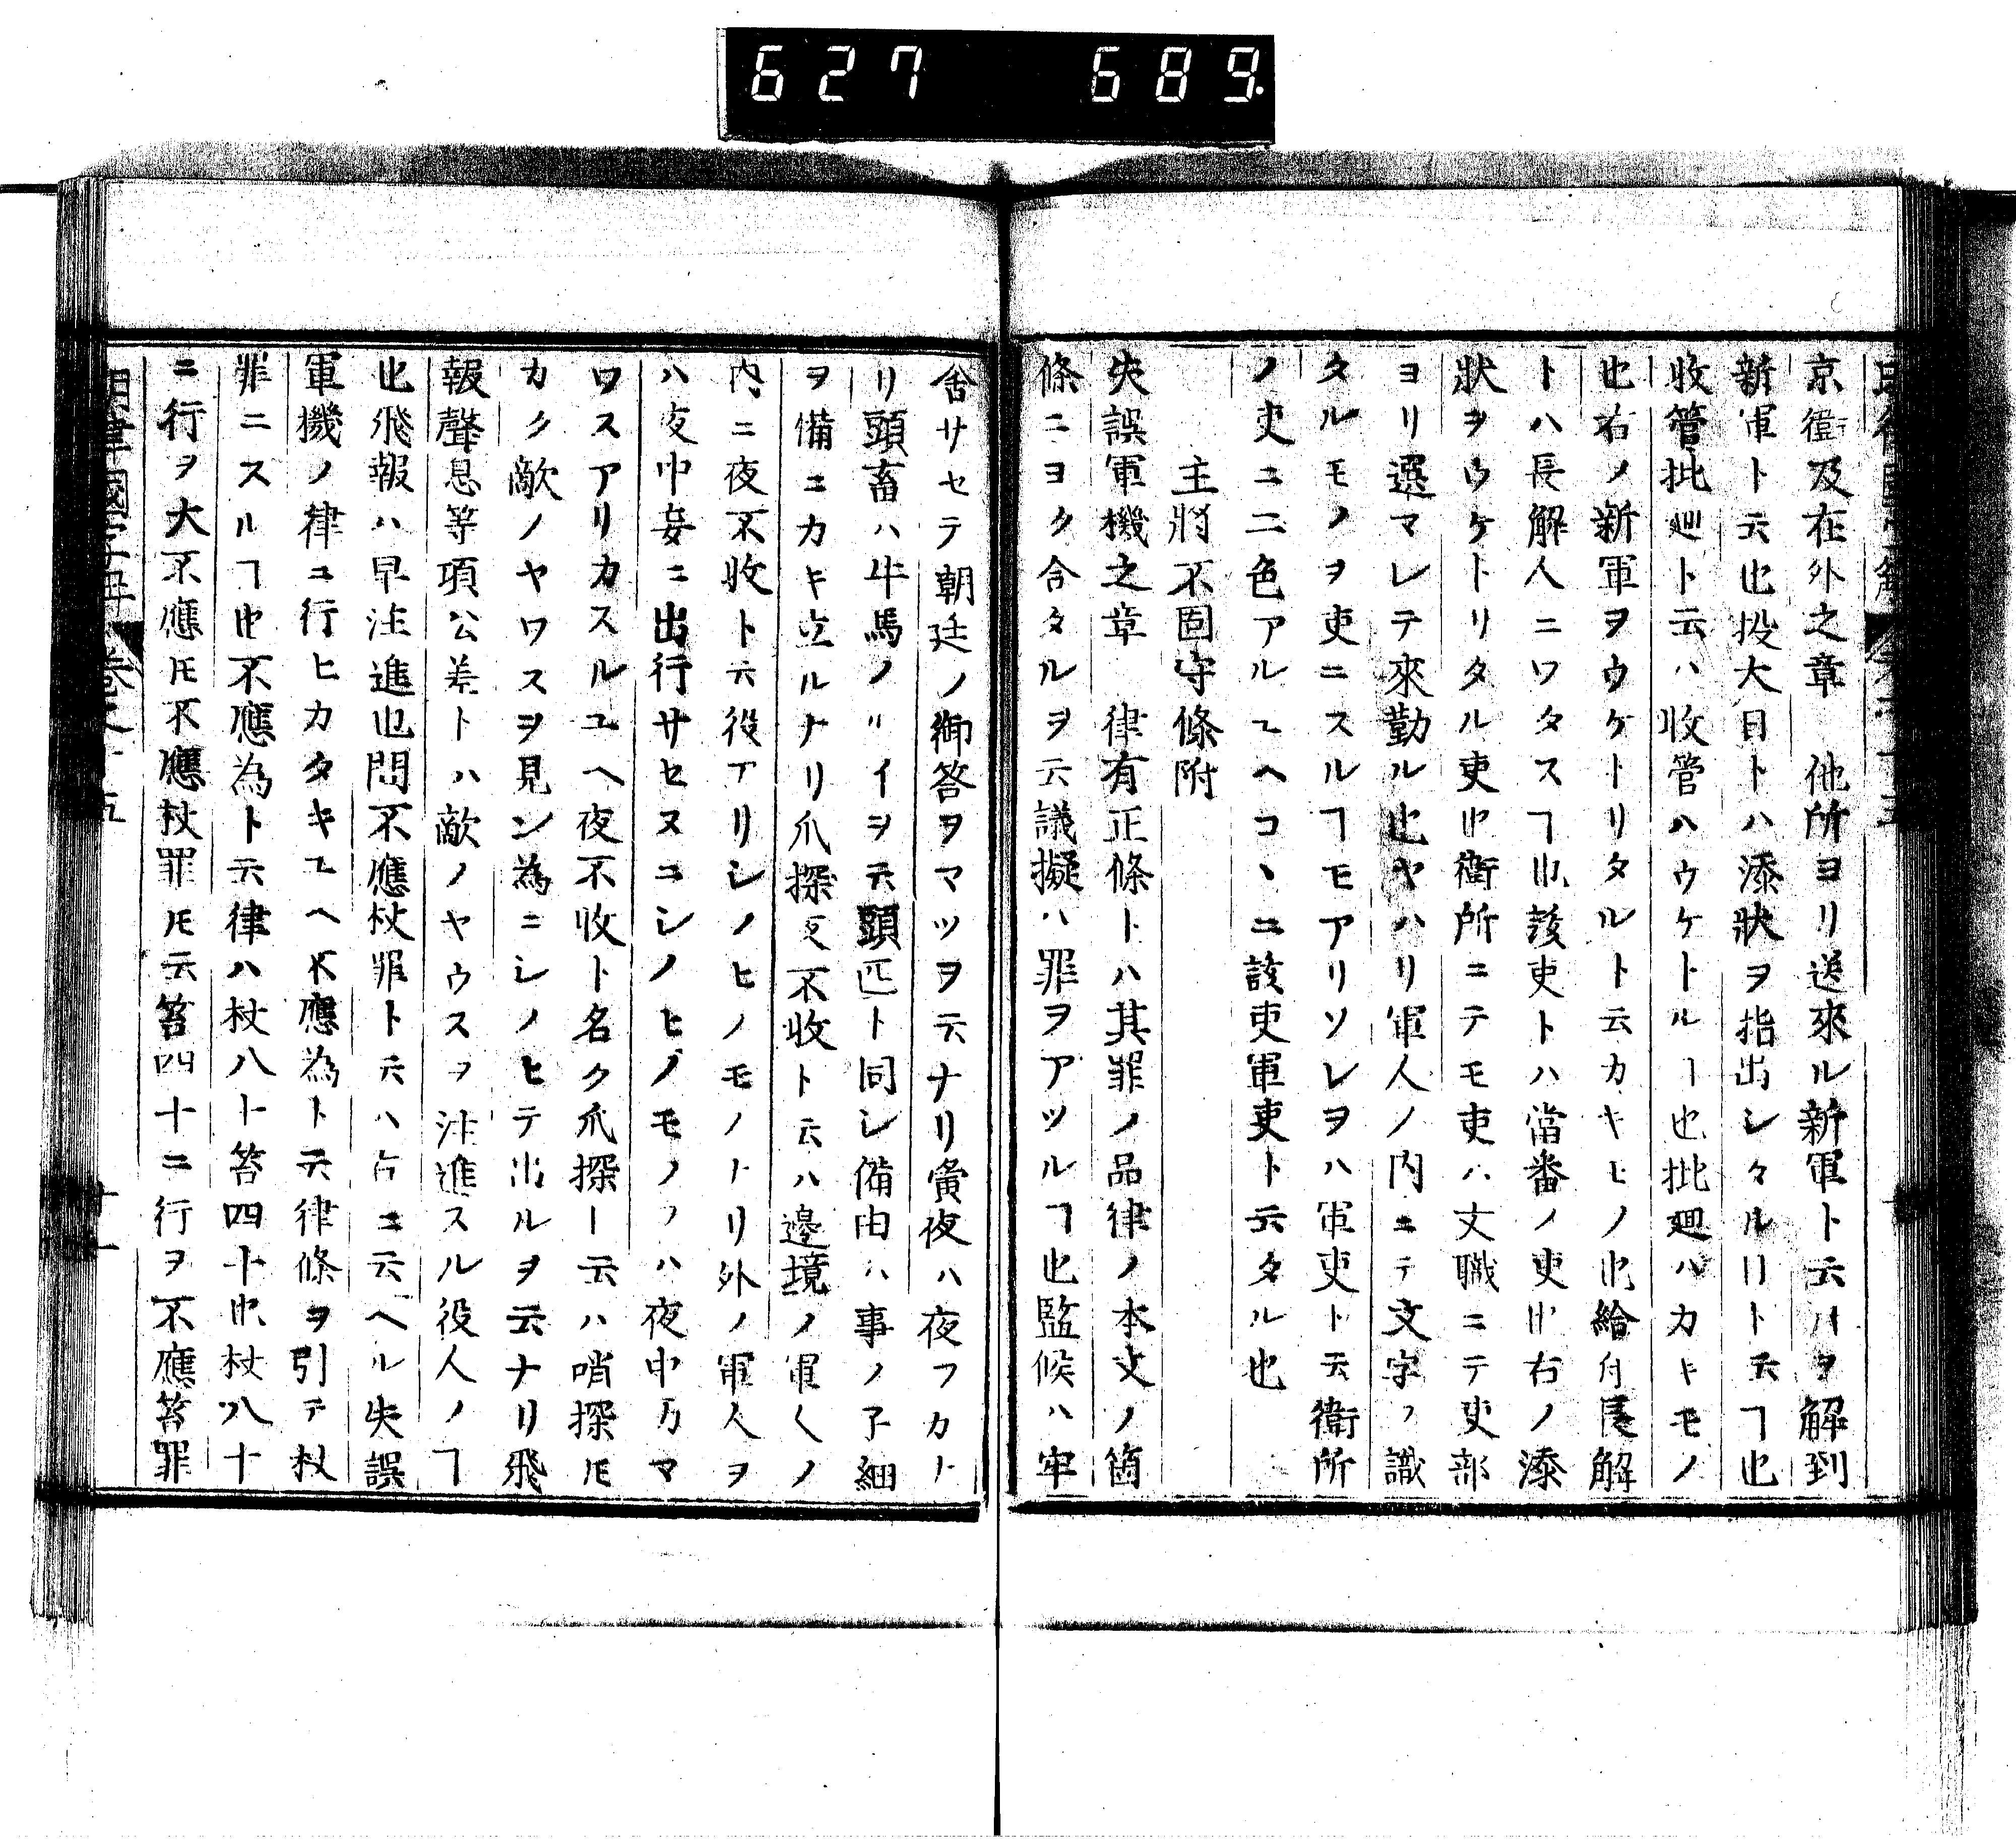 627 689
京衞及在外之章　他所ヨリ送來ル新軍ト云ハヲ解到
新軍ト云也投大目トハ添狀ヲ指出シタル日ト云ヿ也
收管批廻ト云ハ收管ハウケトルヿ也批廻ハカキモノ
也右ノ新軍ヲウケトリタルト云カキモノ也給付長解
トハ長解人ニワタスヿ也該吏トハ當番ノ吏也右ノ添
狀ヲウケトリタル吏也衞所ニテモ吏ハ文職ニテ吏部
ヨリ選マレテ來勤ル也ヤハリ軍人ノ内ニテ文字ヲ識
タルモノヲ吏ニスルヿモアリソレヲハ軍吏ト云衞所
ノ吏ニ二色アルユヘコヽニ該吏軍吏ト云タル也
主將不固守條附
失誤軍機之章　律有正條トハ其罪ノ品律ノ本文ノ箇
條ニヨク合タルヲ云議擬ハ罪ヲアツルヿ也監候ハ牢
舍サセテ朝廷ノ御答ヲマツヲ云ナリ夤夜ハ夜フカナ
リ頭畜ハ牛馬ノルイヲ云頭匹ト同シ備由ハ事ノ子細
ヲ備ニカキ立ルナリ爪探夜不收ト云ハ邊境ノ軍〱ノ
内ニ夜不收ト云役アリシノヒノモノナリ外ノ軍人ヲ
ハ夜中妄ニ出行サセスコシノヒノモノヲハ夜中カマ
ワスアリカスルユヘ夜不收ト名ク爪探ト云ハ哨探トモ
カク敵ノヤウスヲ見ン為ニシノヒテ出ルヲ云ナリ飛
報聲息等項公差トハ敵ノヤウスヲ注進スル役人ノヿ
也飛報ハ早注進也問不應杖罪ト云ハ右ニ云ヘル失誤
軍機ノ律ニ行ヒカタキユヘ不應為ト云律條ヲ引テ杖
罪ニスルヿ也不應為ト云律ハ杖八十笞四十也杖八十
ニ行ヲ大不應トモ不應杖罪トモ云笞四十ニ行ヲ不應笞罪